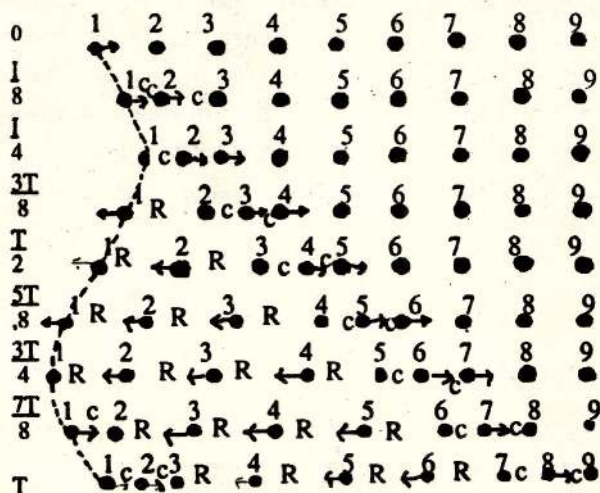 0 1 2 3 4 5 6 7 8 9
T/8 1 c c 2 c 3 4 5 6 7 8 9
T/4 1 c 2 3 4 5 6 7 8 9
3T/8 1 R 2 c 3 c 4 5 6 7 8 9
T/2 1 R 2 R 3 c 4 c 5 6 7 8 9
5T/8 1 R 2 R 3 R 4 c 5 c 6 7 8 9
3T/4 1 R 2 R 3 R 4 R 5 c 6 c 7 8 9
7T/8 1 c 2 R 3 R 4 R 5 R 6 c 7 c 8 9
T 1 c 2 c 3 R 4 R 5 R 6 R 7 c 8 c 9